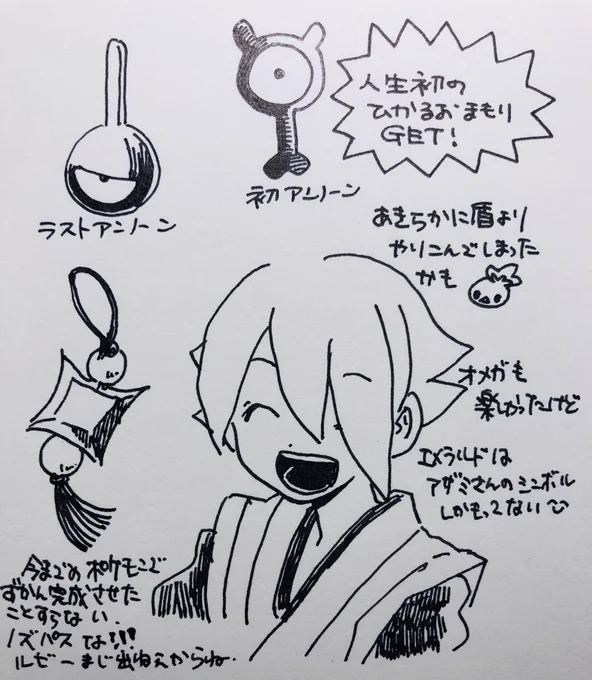 人生初の
ひかるおまもり
GET!
初アンノーン
ラストアンノーン
あきらかに盾より
やりこんでしまった
かも
オメガも
楽しかったけど
エメラルドは
アザミさんのシンボル
しかもってない
今までのポケモンで
ずかん完成させた
ことすらない.
ノズパスな!!!
ルビーまじ出ねぇからね.